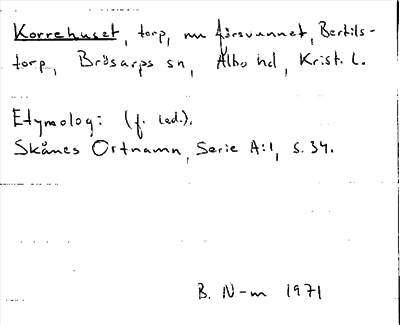 Korrehuset, torp, nu försvunnet, Bertils-
torp, Brösarps sn, Albo hd, Krist. L.
Etymolog: (f. led.).
Skånes Ortnamn, Serie A:1, s. 34.
B. N-m 1971